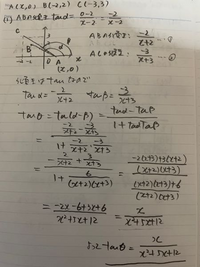 A(x,0) B(-2,2) C(-3,3)
(i) ABの傾き tanα = \frac{0-2}{x-2} = \frac{-2}{x-2}
C
B
A
x
(x,0)
ABの傾き \frac{-2}{x+2} …①
ACの傾き \frac{-3}{x+3} …②
tanα = -\frac{2}{x+2} tanβ = \frac{-3}{x+3}
tanθ = tan(α-β) = \frac{tanα-tanβ}{1+tanαtanβ}
= \frac{\frac{-2}{x+2} - \frac{-3}{x+3}}{1+\frac{-2}{x+2}·\frac{-3}{x+3}}
= \frac{-\frac{2}{x+2}+\frac{3}{x+3}}{1+\frac{6}{(x+2)(x+3)}} = \frac{\frac{-2(x+3)+3(x+2)}{(x+2)(x+3)}}{\frac{(x+2)(x+3)+6}{(x+2)(x+3)}}
= \frac{-2x-6+3x+6}{x²+5x+12} = \frac{x}{x²+5x+12}
tanθ = \frac{x}{x²+5x+12}